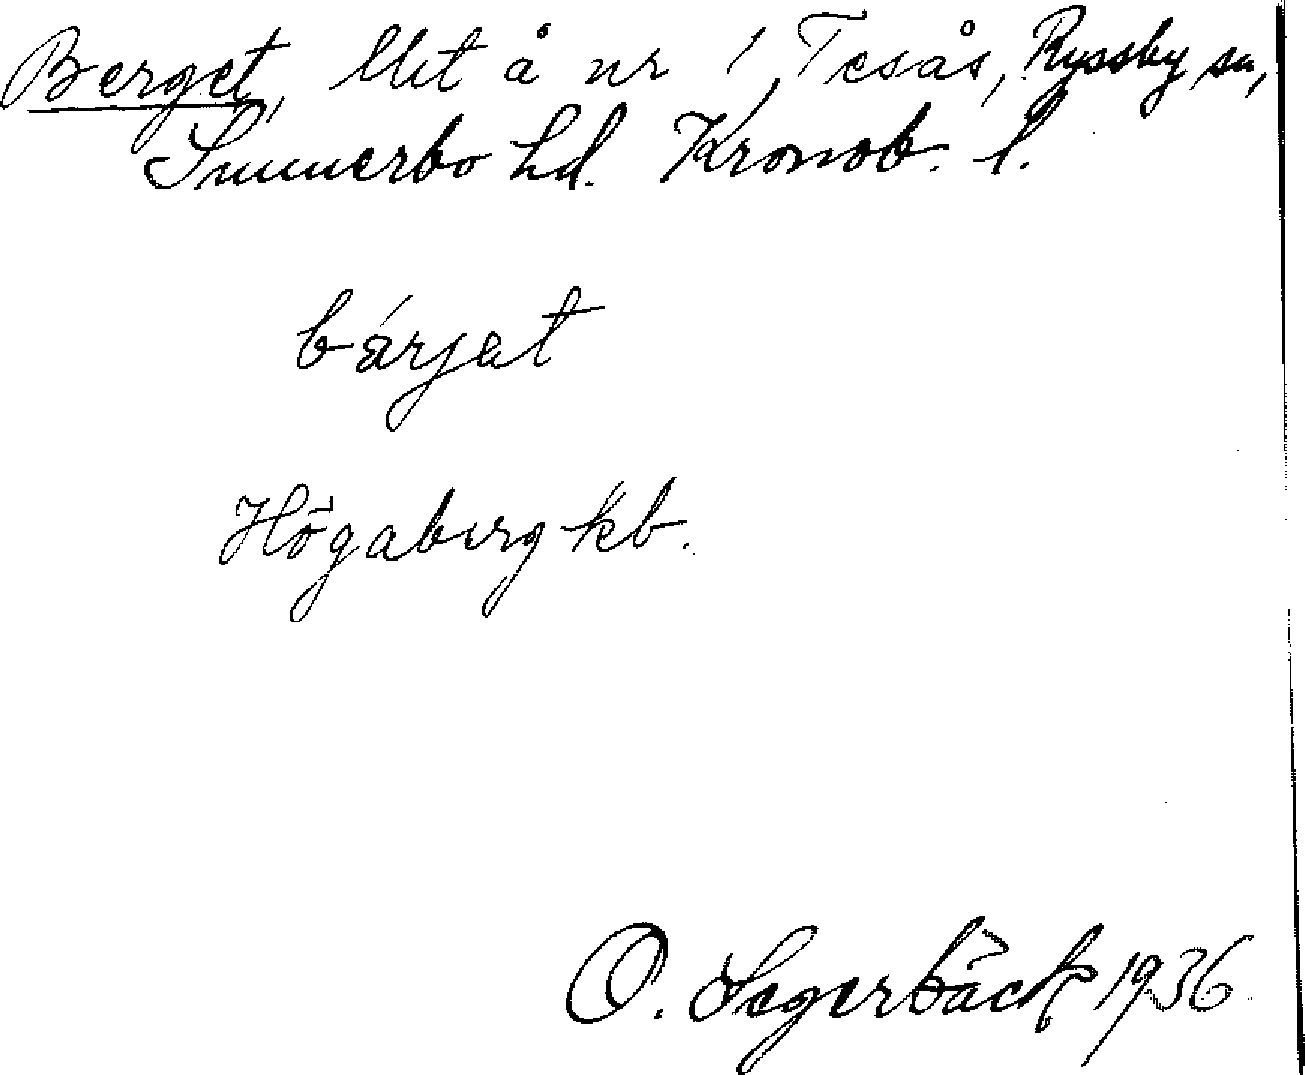 Berget, lht å nr 1, Tesås, Ryssby sn,
Sunnerbo hd. Kronob. l.
bárjat
Högaberg kb.
O. Segerbäck 1936